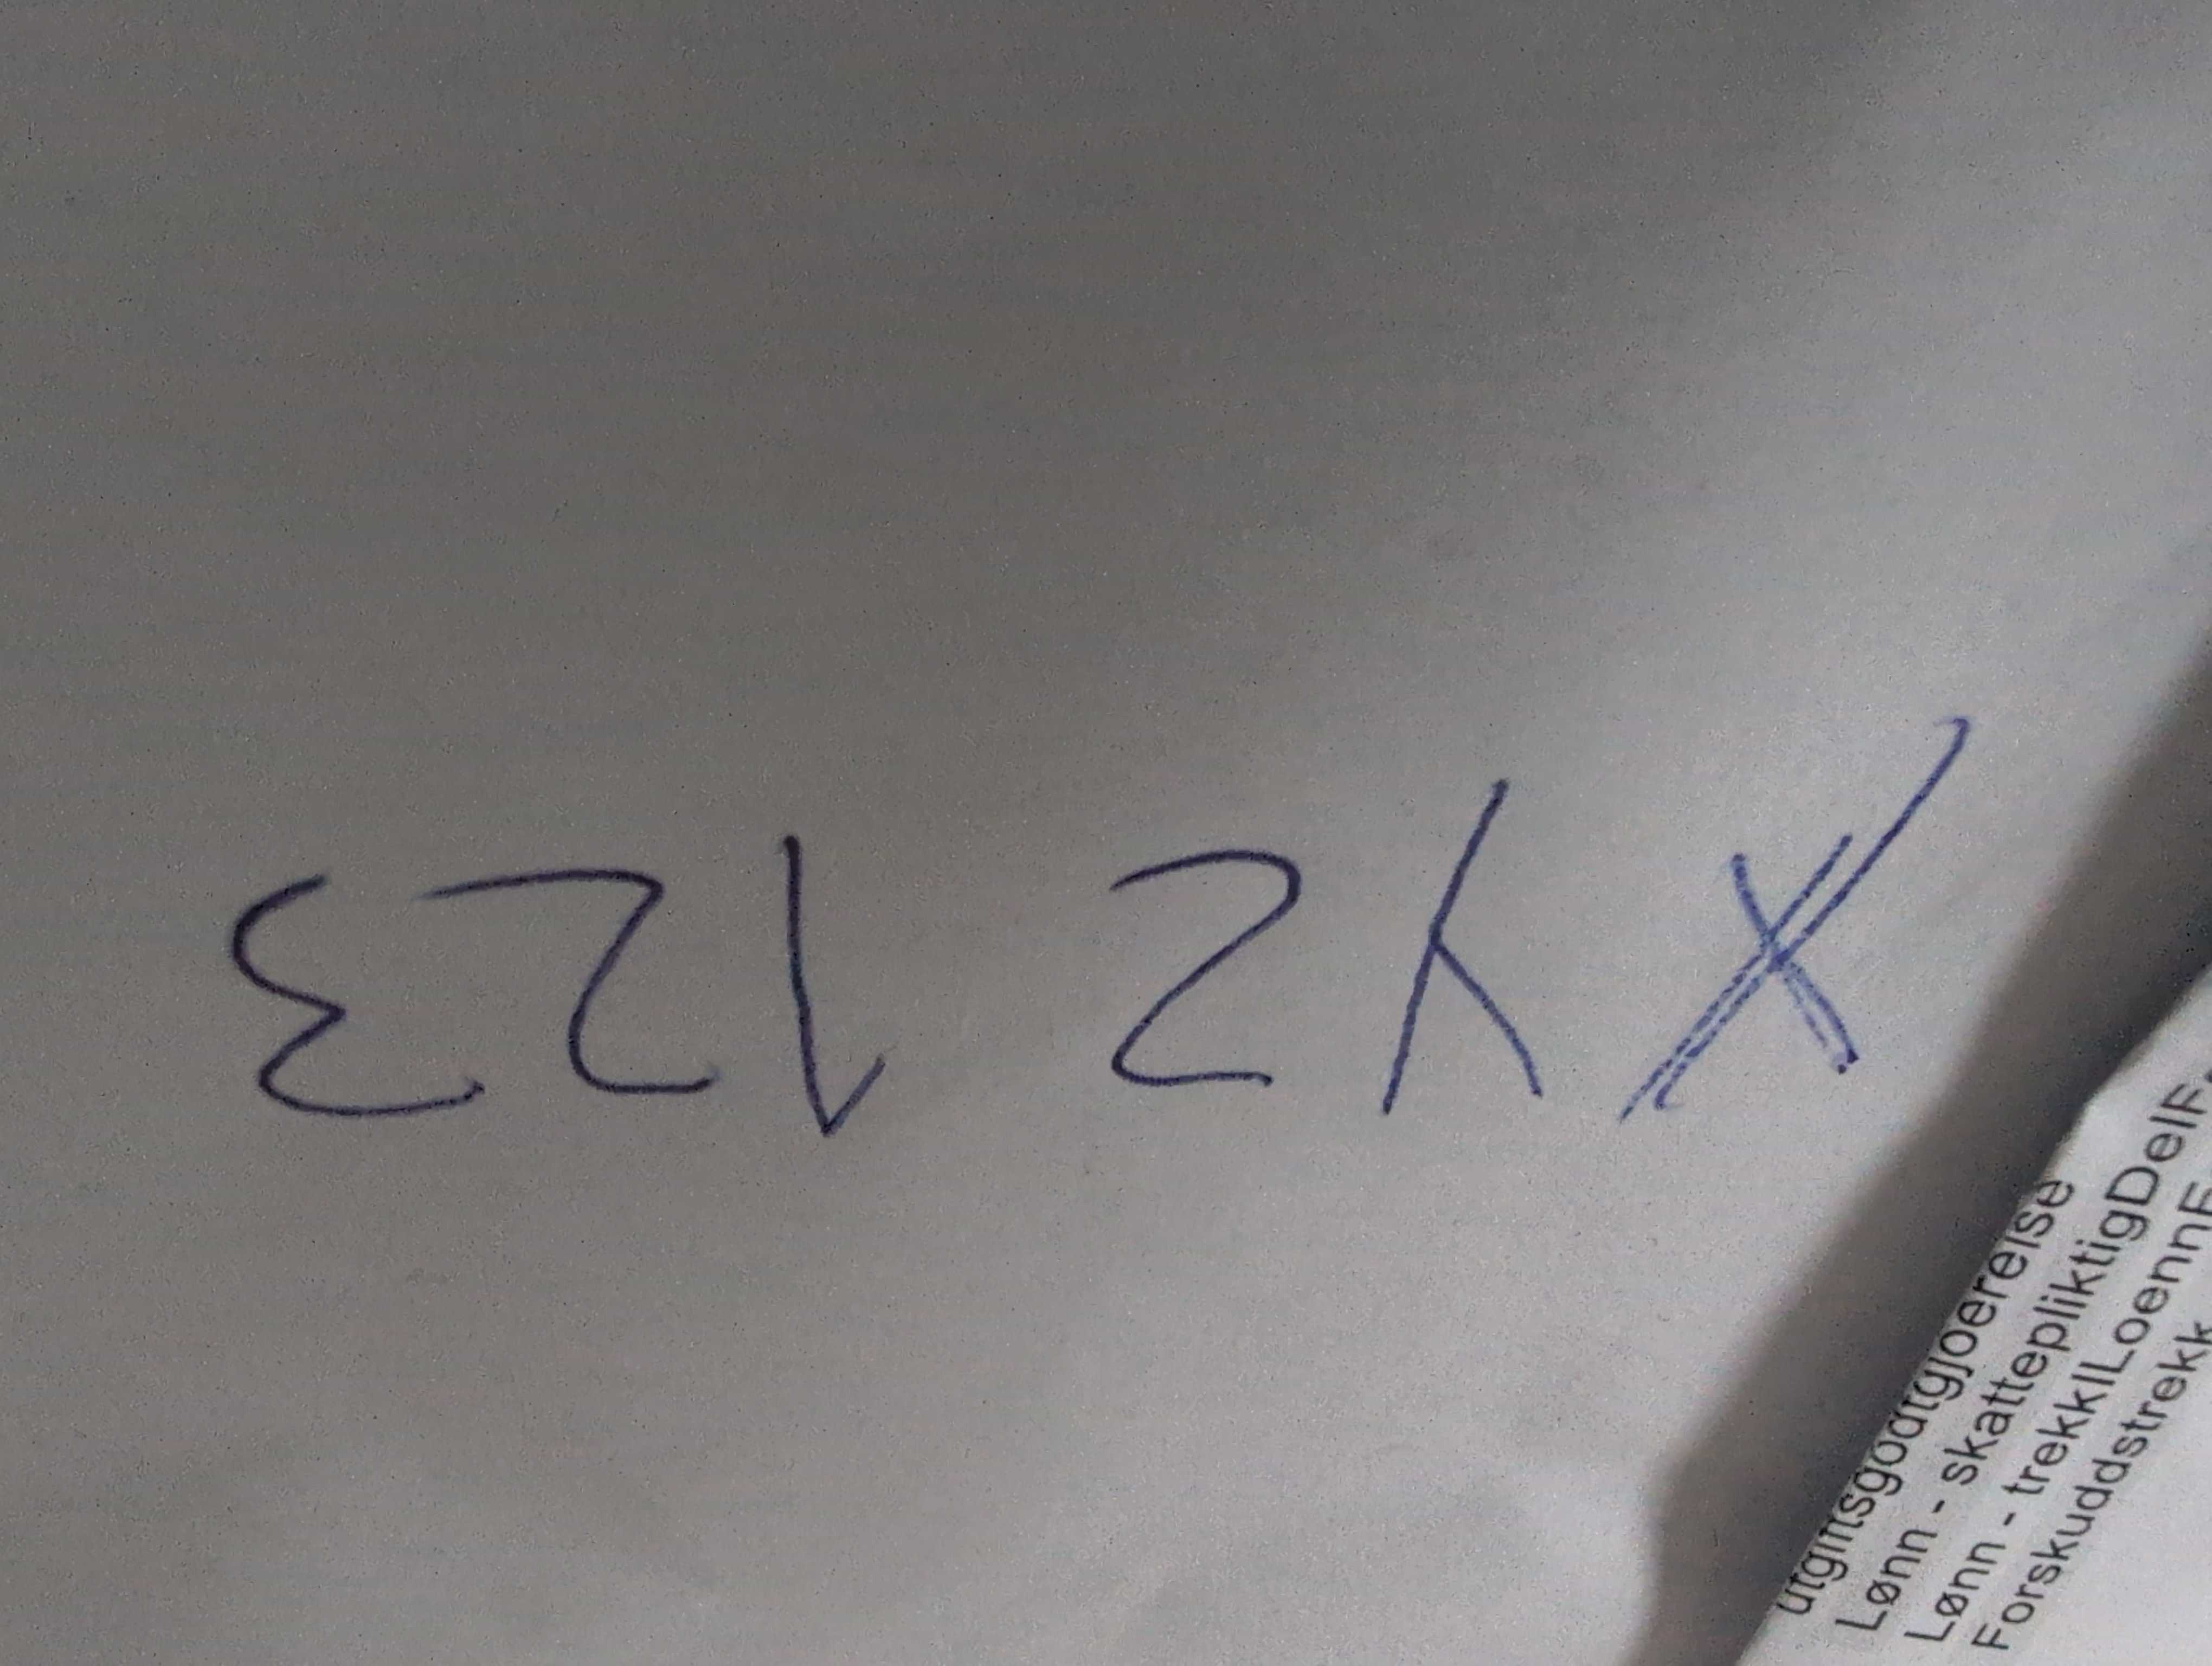 utgiftsgodtgjoerelse
Lønn - skattepliktigDelF
Lønn - trekkILoennF
Forskuddstrekk
XYZ 123